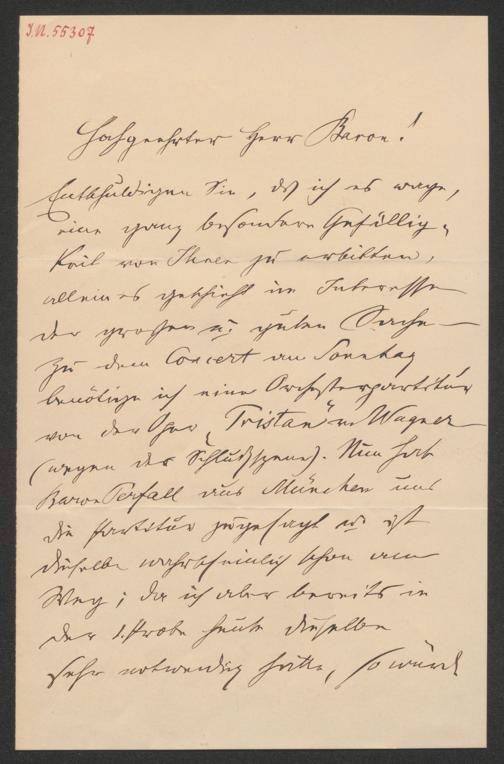 I.N. 55307
Hochgeehrter Herr Baron!
Entschuldigen Sie, dß ich es wage,
eine ganz besondere Gefällig-
keit von Ihnen zu erbitten,
allein es geschieht im Interesse
der grossen u. guten Sache –
Zu dem Concert am Sonntag
benötige ich eine Orchesterpartitur
von der Oper „Tristan“ v. Wagner
(wegen der Schlußszene). Nun hat
Baron Perfall aus München uns
die Partitur zugesagt u. ist
dieselbe wahrscheinlich schon am
Weg; da ich aber bereits in
der 1. Probe heute dieselbe
sehr notwendig hätte, so würde